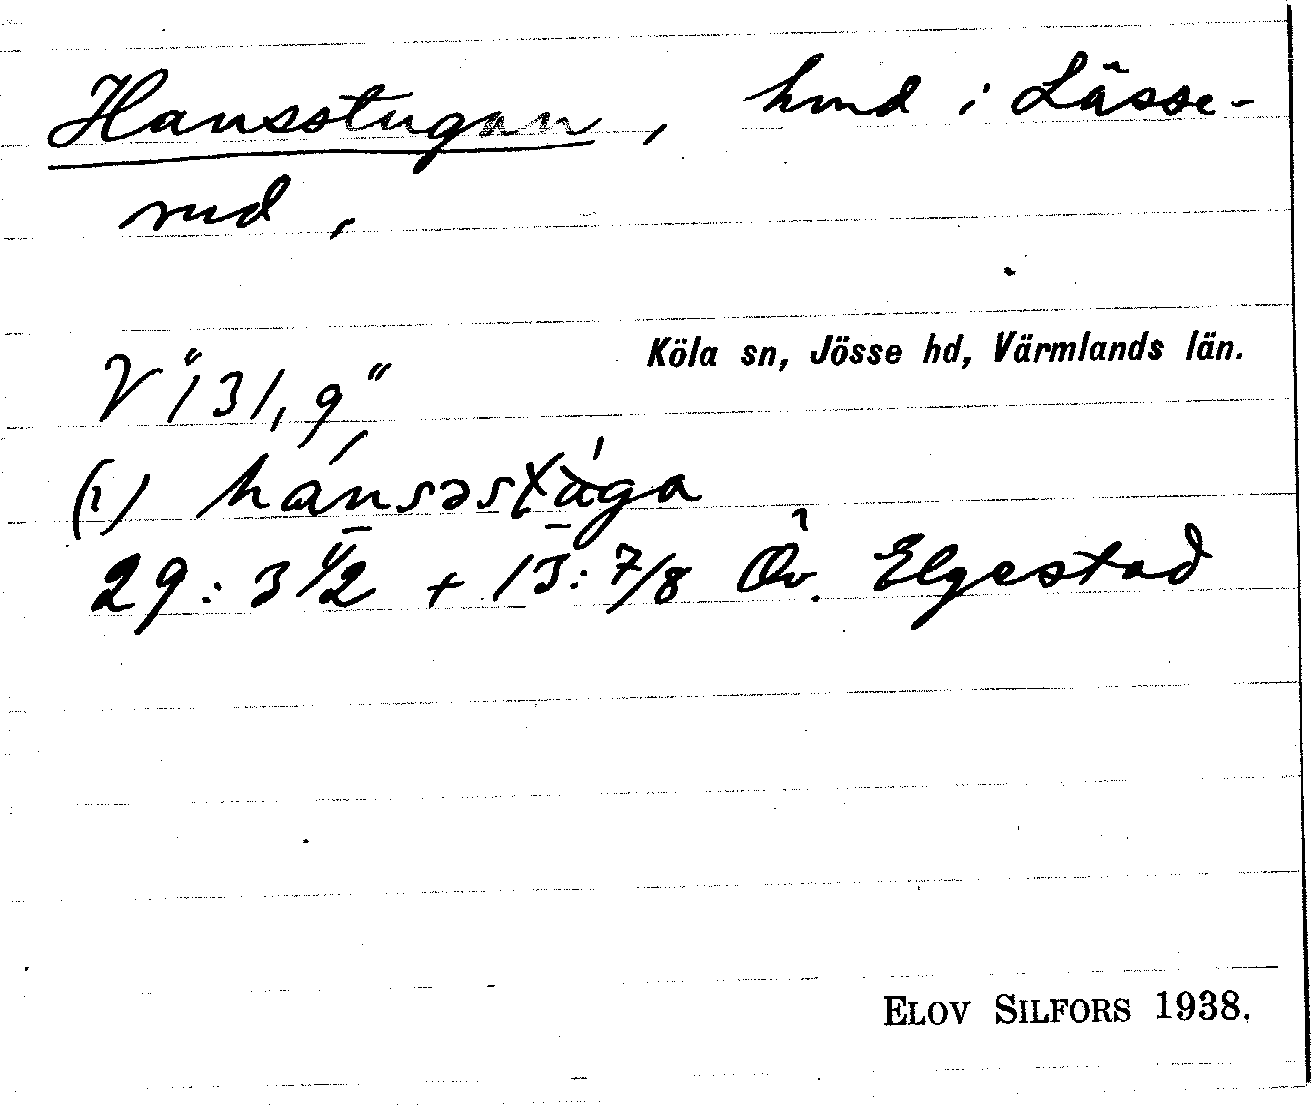 Hansstugan, hmd i Lässe-
rud,
Köla sn, Jösse hd, Värmlands län.
V "131,9"
(1)
29:3 1/2 + 13:7/8 Öv. Elgestad
ELOV SILFORS 1938.